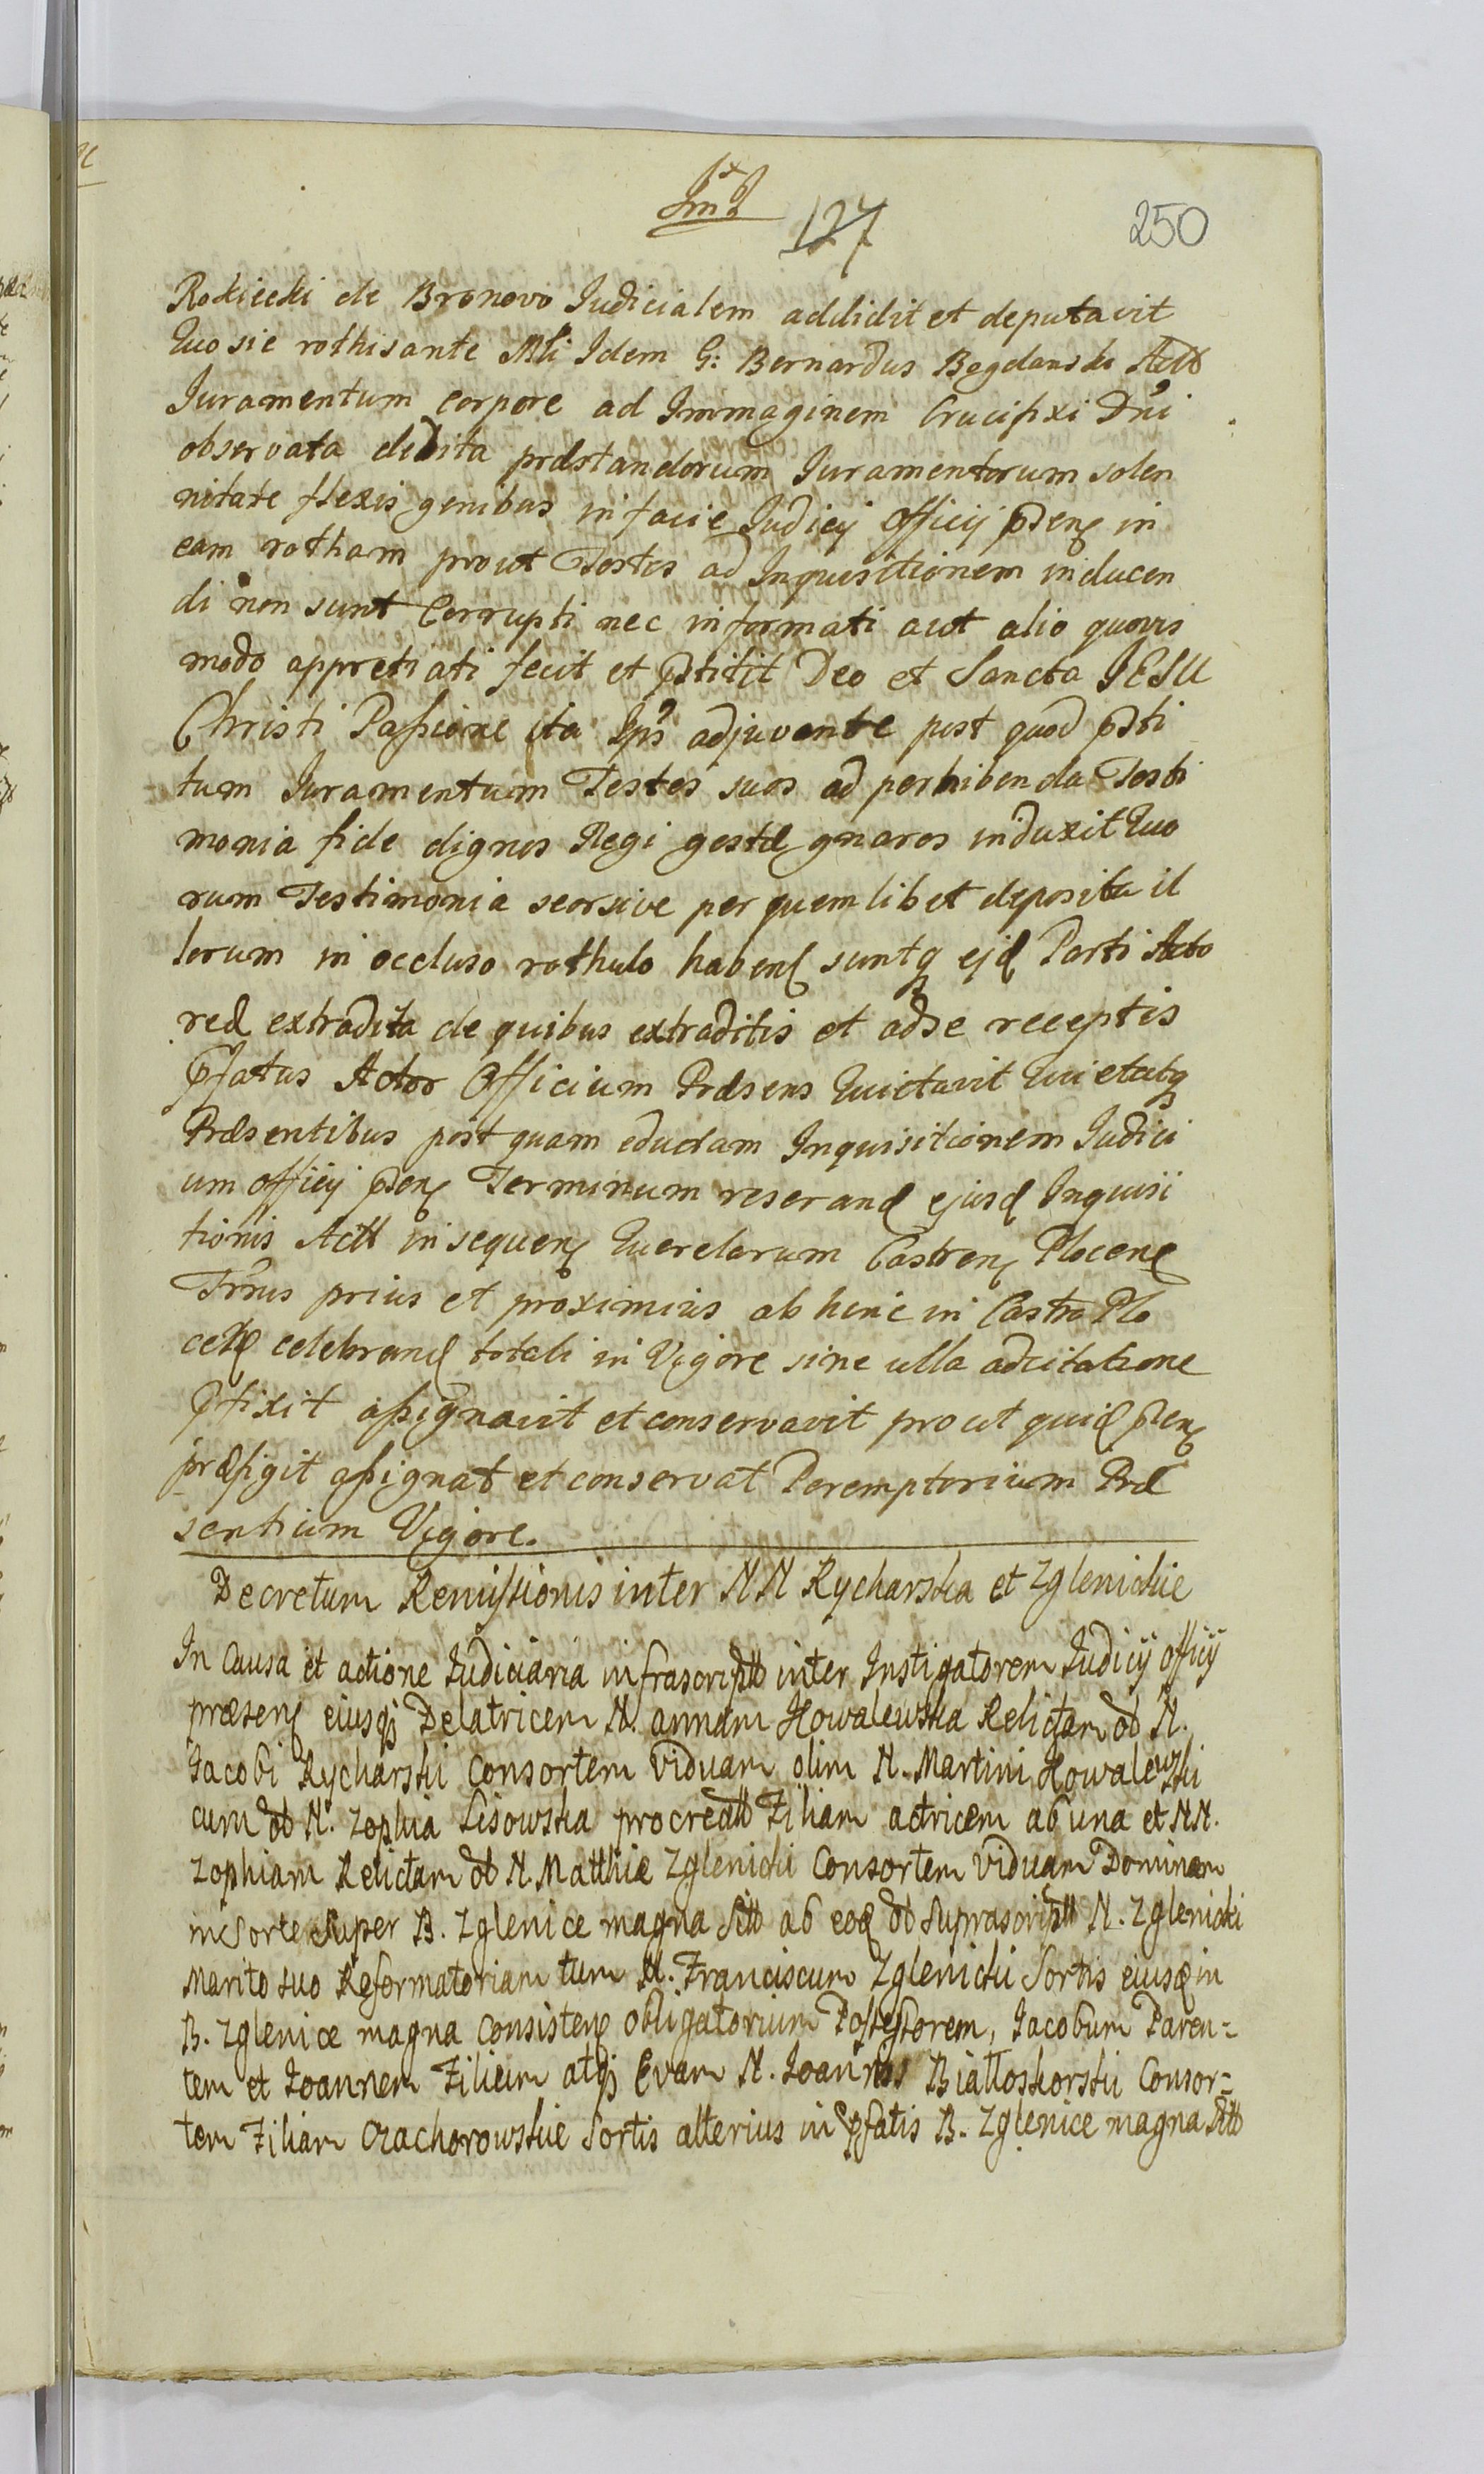 127
250
Rokicki de Bronovo Iudicialem addidit et deputavit
Quo sic rothisante Mli Idem G: Bernardus Bogdanski Actt
Iuramentum corpore ad Immaginem Crucifixi Dni
observata debita præstandorum Iuramentorum solen
nitate flexis genibus in facie Iudicij officij pñsen in
eam rotham prout Testes ad Inquisitionem inducen
di non sunt Corrupti nec informati aut alio quovis
modo appretiati fecit et pstitit Deo et Sancta IESU
Christi Passione ita Ips adjuvente post quod psti
tum Iuramentum Testes suos ad perhibenda Testi
monia fide dignos Regi gestæ gnaros induxit Quo
rum Testimonia seorsive per quemlibet deposita il
lorum in occluso rothulo haben suntq ejd Parti Acto
reæ extradita de quibus extraditis et adse receptis
pfatus Actor Officium Præsens Quietavit Quietatq
Præsentibus post quam eductam Inquisitionem Iudici
um officij psen Terminum reserand ejusd Inquisi
tionis Actt in sequen Querelarum Castren Plocen
Trnus prius et proximius ab hinc in Castro Plo
cen celebrand totali in Vigore sine ulla adcitatione
pfixit assignavit et conservavit prout quid psen
præfigit assignat et conservat Peremptorium Præ
sentium Vigore.
Decretum Remissionis inter NN Rycharska et Zglenickie
In Causa et actione Iudiciaria infrascriptt inter Instigatorem Iudicij officij
præsen eiusq Delatricem N. annam Kowalewska Relictam ol N.
Iacobi Rycharski Consortem Viduam olim N. Martini Kowalewski
cum ol N. Zophia Lisowska procreatt Filiam actricem ab una et NN.
Zophiam Relictam ol N. Matthiæ Zglenicki Consortem Viduam Dominam
in Sorte super B. Zglenice magna Sitt ab eod ol Suprascriptt N. Zglenicki
Marito suo Reformatoriam tum N. Franciscum Zglenicki Sortis eiusd in
B. Zglenice magna Consisten obligatorium Possessorem, Iacobum Paren-
tem et Ioannem Filium atq Evam N. Ioannis Białłoskorski Consor-
tem Filiam Czachorowskie Sortis alterius in pfatis B. Zglenice magna Sitt